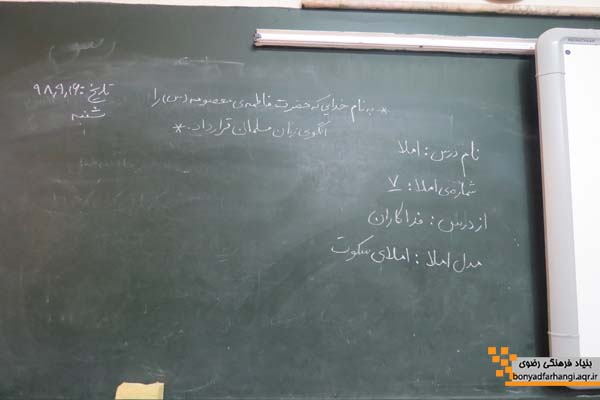 * به نام خدایی که حضرت فاطمه‌ی معصومه (س) را
الگوی زنان مسلمان قرار داد. *
تاریخ: ۹۸,۹,۱۶
شنبه
نام درس: املا
شماره‌ی املا: ۷
از درس: فداکاران
مدل املا: املای سکوت
بنیاد فرهنگی رضوی
bonyadfarhangi.aqr.ir